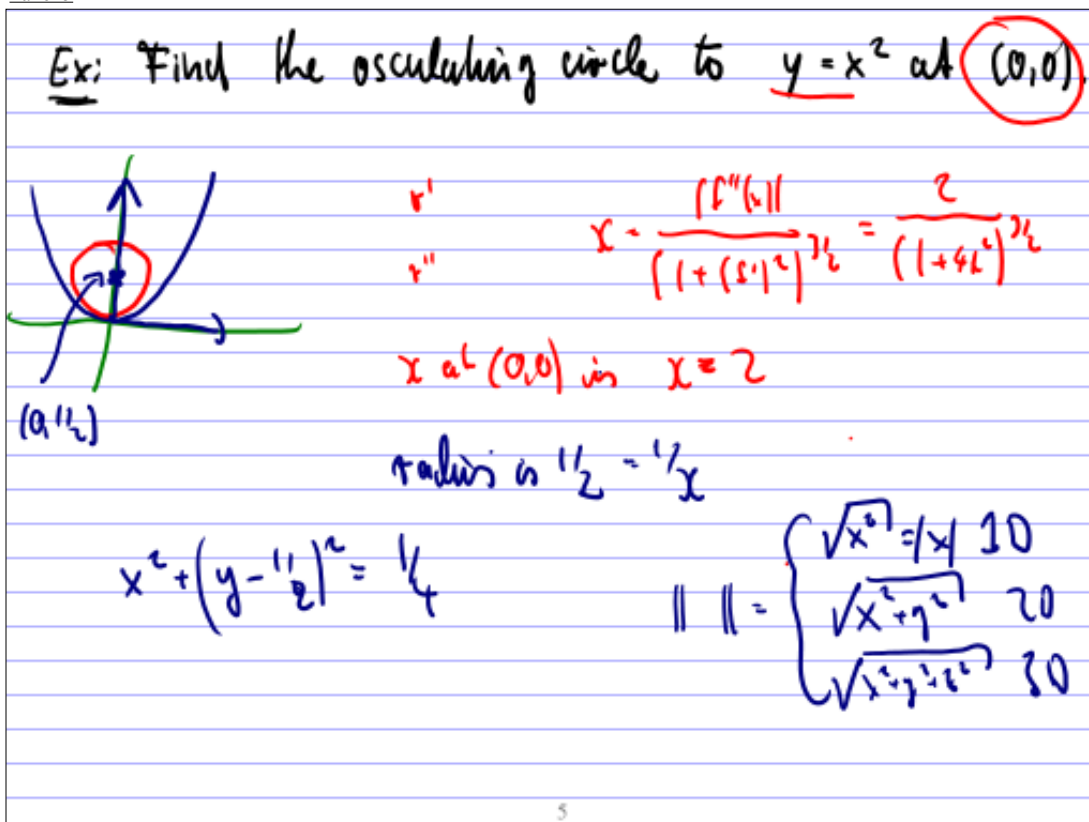 Ex: Find the osculating circle to y = x² at (0,0).
r'
r''
ϰ = |f''(x)| / (1 + (f')²)^3/2 = 2 / (1 + 4x²)^3/2
ϰ at (0,0) is ϰ = 2
(0, 1/2)
radius is 1/2 = 1/ϰ
x² + (y - 1/2)² = 1/4
|| || = { √x² = |x| 1D
√x² + y² 2D
√x² + y² + z² 3D
5